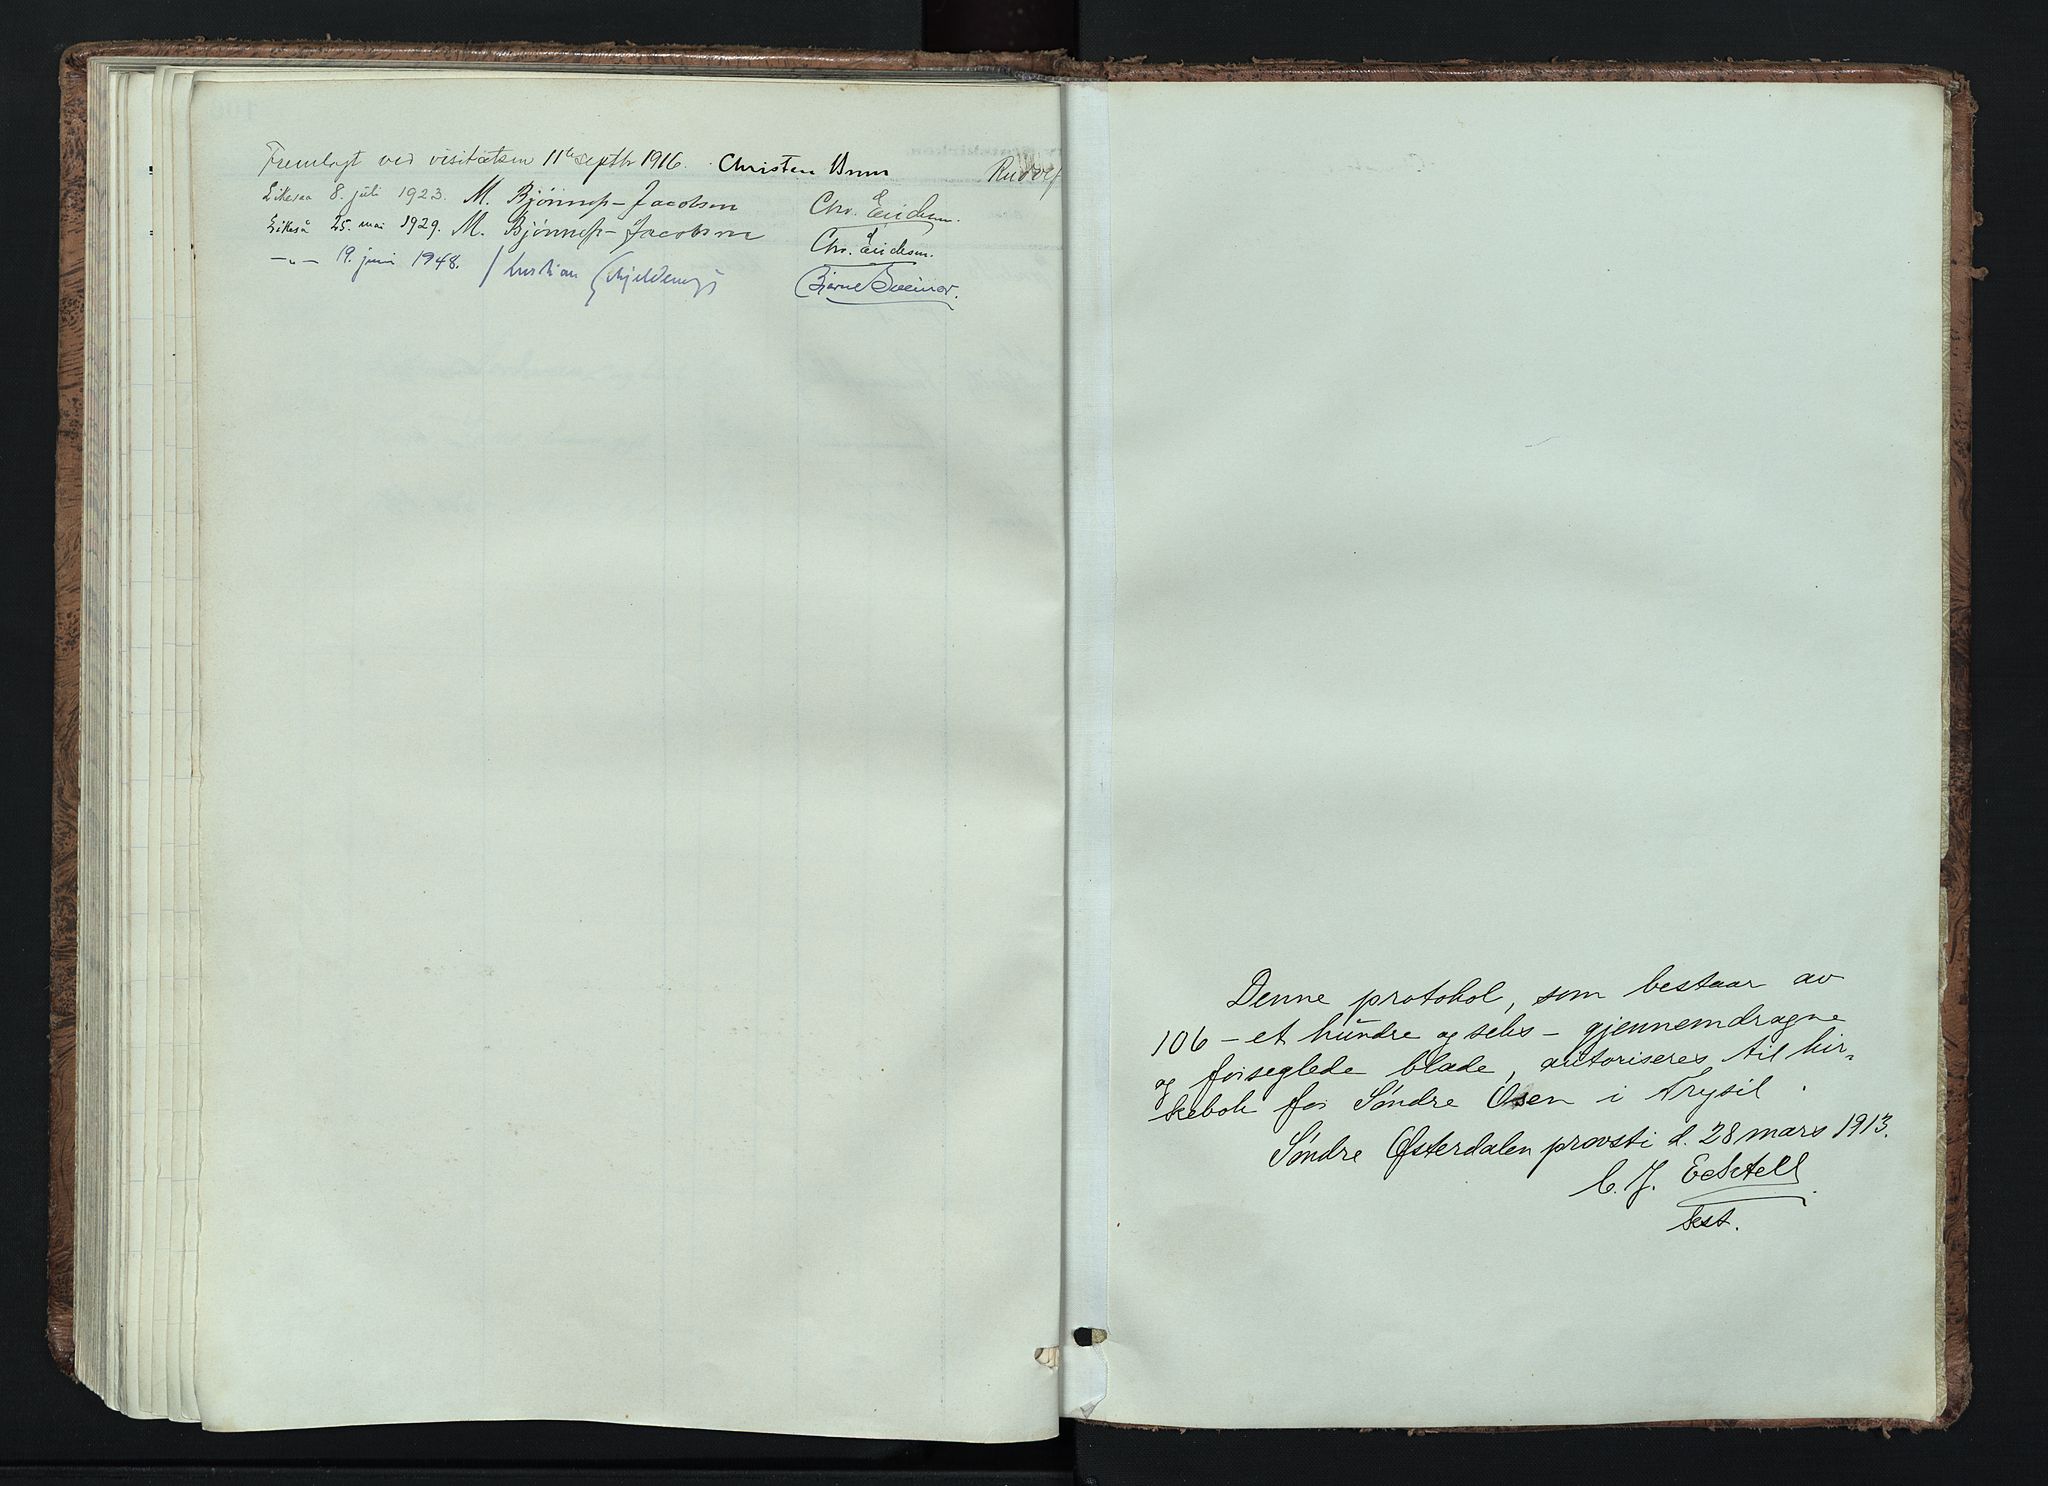 Fremlagt ved visitatsen 11te septbr 1916. Christen Brun Rudolf
Likesaa 8. juli 1923. M. Bjønness-Jacobsen Chr.
Likeså 25. mai 1929. M. Bjønness-Jacobsen Chr.
-"- 19. juni 1948. Kristian Schjelderup Bjarne
Denne protokol, som bestaar av
106 – et hundre og seks – gjennemdragne
og forseglede blade, autoriseres til kir-
kebok for Søndre Osen i Trysil.
Søndre Østerdalen provsti d. 28 mars 1913.
C. J. Ecktell
kst.